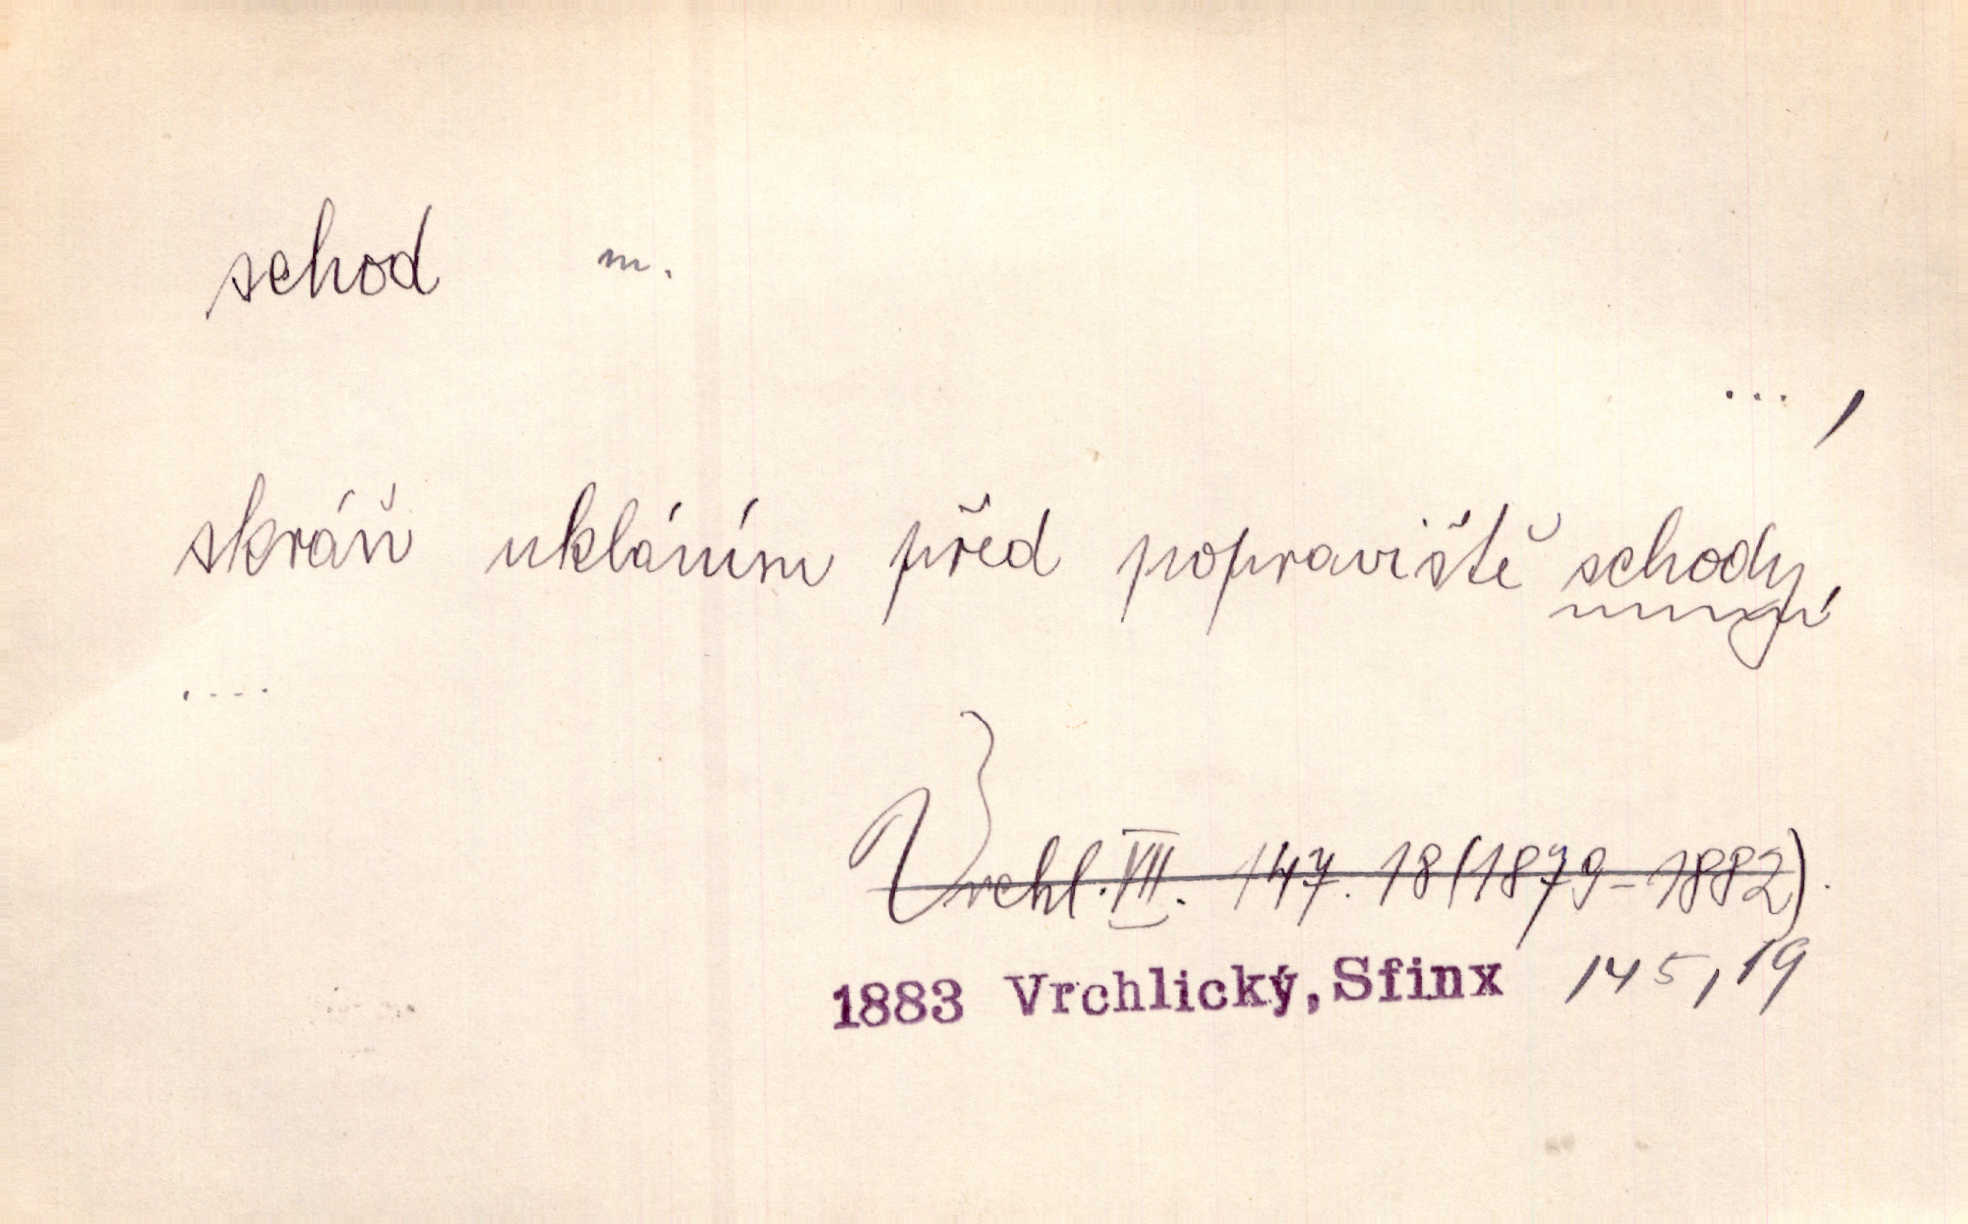 schod m.
... ,
skráň ukláním před popraviště schody,
....
Vrchl. VII. 147. 18 (1879–1882).
1883 Vrchlický, Sfinx 145, 19